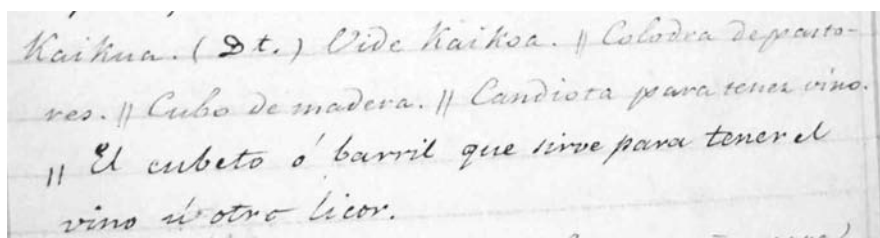 Kaikua. (Dt.) Vide Kaikoa. || Colodra de pasto-
res. || Cubo de madera. || Candiota para tener vino.
|| El cubeto ó barril que sirve para tener el
vino ú otro licor.